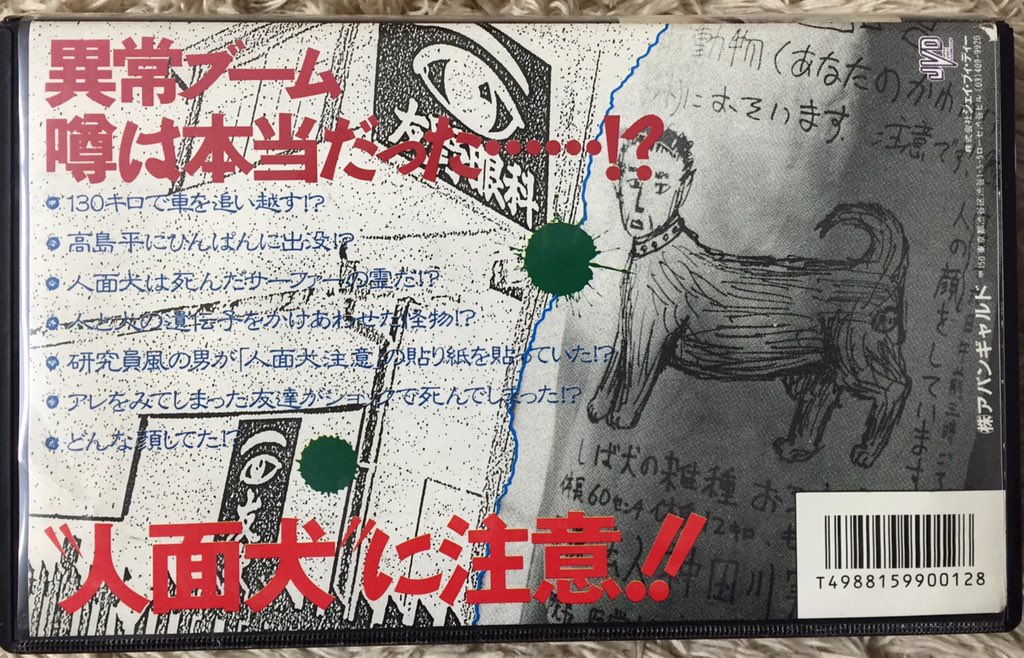 異常ブーム
噂は本当だった……!?
130キロで車を追い越す!?
高島平にひんぱんに出没!?
人面犬は死んだサーファーの霊だ!?
人と犬の遺伝子をかけあわせた怪物!?
研究員風の男が「人面犬注意」の貼り紙を貼っていた!?
アレをみてしまった友達がショックで死んでしまった!?
どんな顔してた!?
"人面犬"に注意!!
眼科
動物(あなたのかわ
におそいます。
注意です。
人の顔をしています
しば犬の雑種
体長60センチ
神田川
JVD
株式会社ジェイ・ブイ・ディー
(株)アバンギャルド
T4988159900128